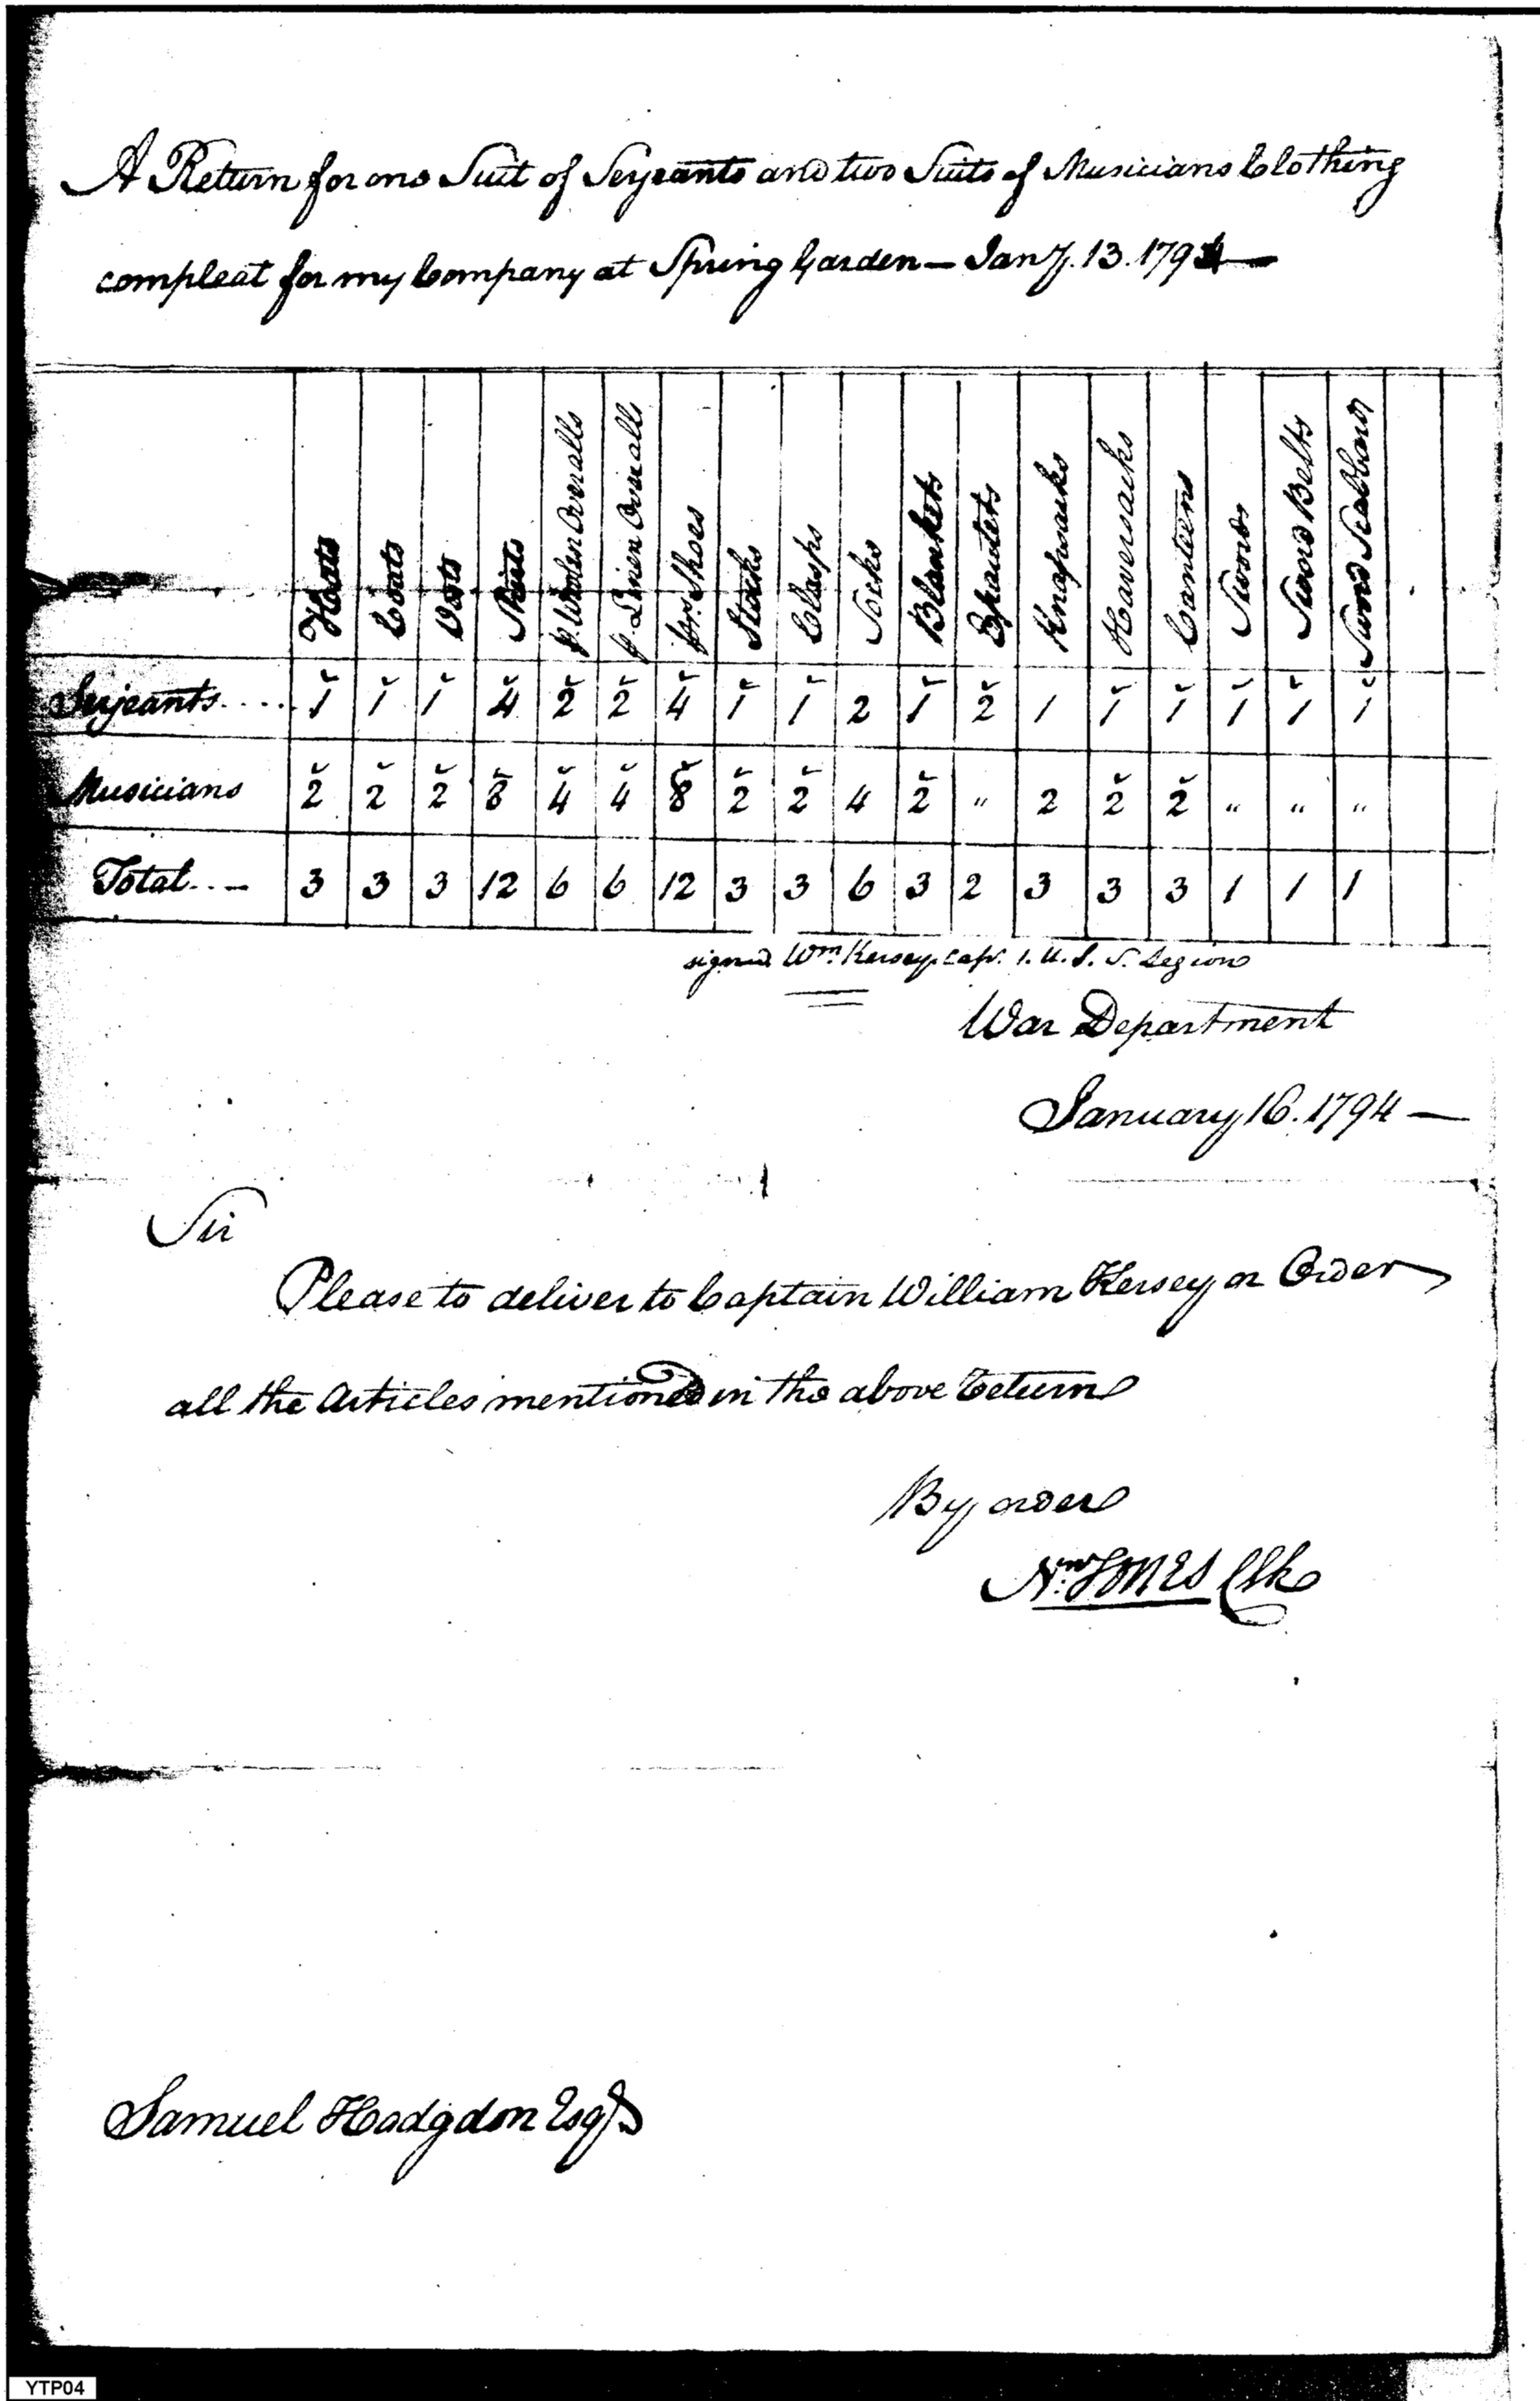 A Return for one Suit of Serjeants and two Suits of Musicians Clothing
compleat for my Company at Spring Garden — Jany. 13. 1794 —
Hats Coats Vests Shirts p. Woolen Overalls p. Linen Overalls pr. Shoes Stocks Clasps Socks Blankets Epaulets Knapsacks Haversacks Canteens Swords Sword Belts Sword Scabbard
Serjeants.... 1 1 1 4 2 2 4 1 1 2 1 2 1 1 1 1 1 1
Musicians 2 2 2 8 4 4 8 2 2 4 2 " 2 2 2 " " "
Total... 3 3 3 12 6 6 12 3 3 6 3 2 3 3 3 1 1 1
signed Wm. Kersey. Capt. 1. U. S. S. Legion
War Department
January 16. 1794 —
Sir
Please to deliver to Captain William Kersey or Order
all the Articles mentioned in the above Return
By order
Jones Clk
Samuel Hodgdon Esqr.
YTP04